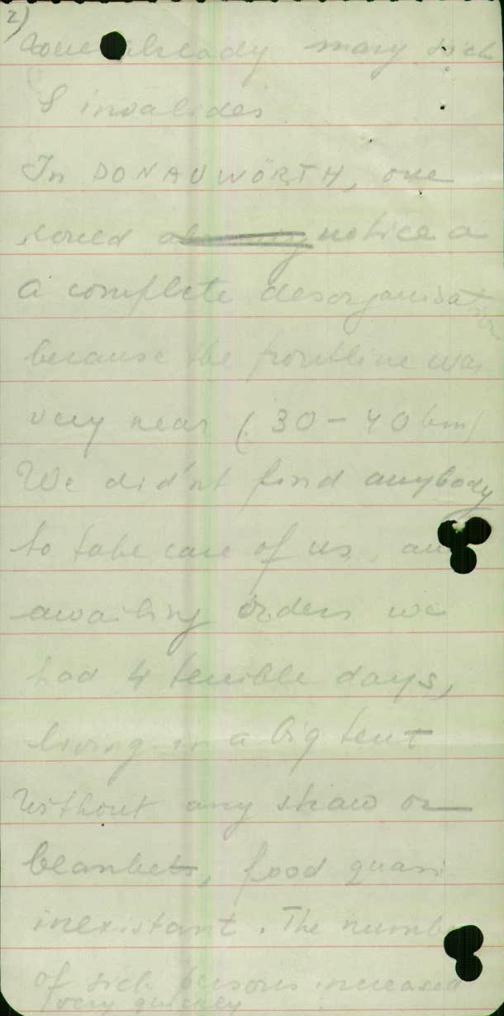 2)
already many sick
& invalides
In DONAUWÖRTH, one
could notice a
a complete desorganisation
because the frontline was
very near (30-40 km)
We did'nt find anybody
to take care of us, and
awaiting orders we
had 4 terrible days,
living in a big tent
without any straw or
blankets, food quasi
inexistant. The number
of sick persons increased
very quickly